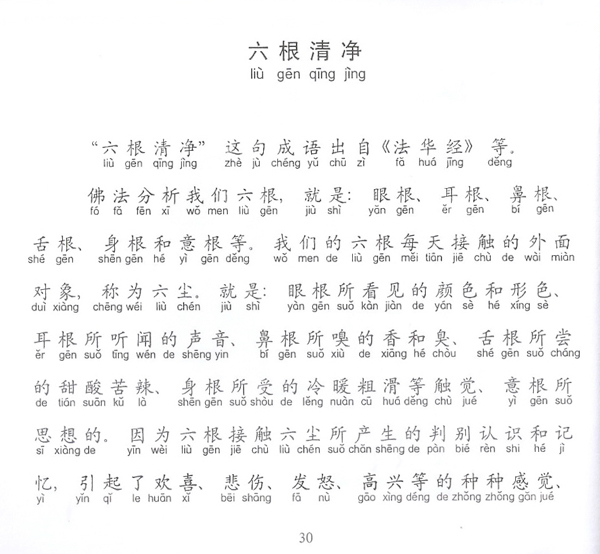 六根清净
liù gēn qīng jìng
“六根清净” 这句成语出自《法华经》等。
liù gēn qīng jìng zhè jù chéng yǔ chū zì fǎ huá jīng děng
佛法分析我们六根，就是：眼根、耳根、鼻根、
fó fǎ fēn xī wǒ men liù gēn jiù shì yǎn gēn ěr gēn bí gēn
舌根、身根和意根等。我们的六根每天接触的外面
shé gēn shēn gēn hé yì gēn děng wǒ men de liù gēn měi tiān jiē chù de wài miàn
对象，称为六尘。就是：眼根所看见的颜色和形色、
duì xiàng chēng wéi liù chén jiù shì yǎn gēn suǒ kàn jiàn de yán sè hé xíng sè
耳根所听闻的声音、鼻根所嗅的香和臭、舌根所尝
ěr gēn suǒ tīng wén de shēng yīn bí gēn suǒ xiù de xiāng hé chòu shé gēn suǒ cháng
的甜酸苦辣、身根所受的冷暖粗滑等触觉、意根所
de tián suān kǔ là shēn gēn suǒ shòu de lěng nuǎn cū huá děng chù jué yì gēn suǒ
思想的。因为六根接触六尘所产生的判别认识和记
sī xiǎng de yīn wèi liù gēn jiē chù liù chén suǒ chǎn shēng de pàn bié rèn shi hé jì
忆，引起了欢喜、悲伤、发怒、高兴等的种种感觉、
yì yǐn qǐ le huān xǐ bēi shāng fā nù gāo xìng děng de zhǒng zhǒng gǎn jué
30